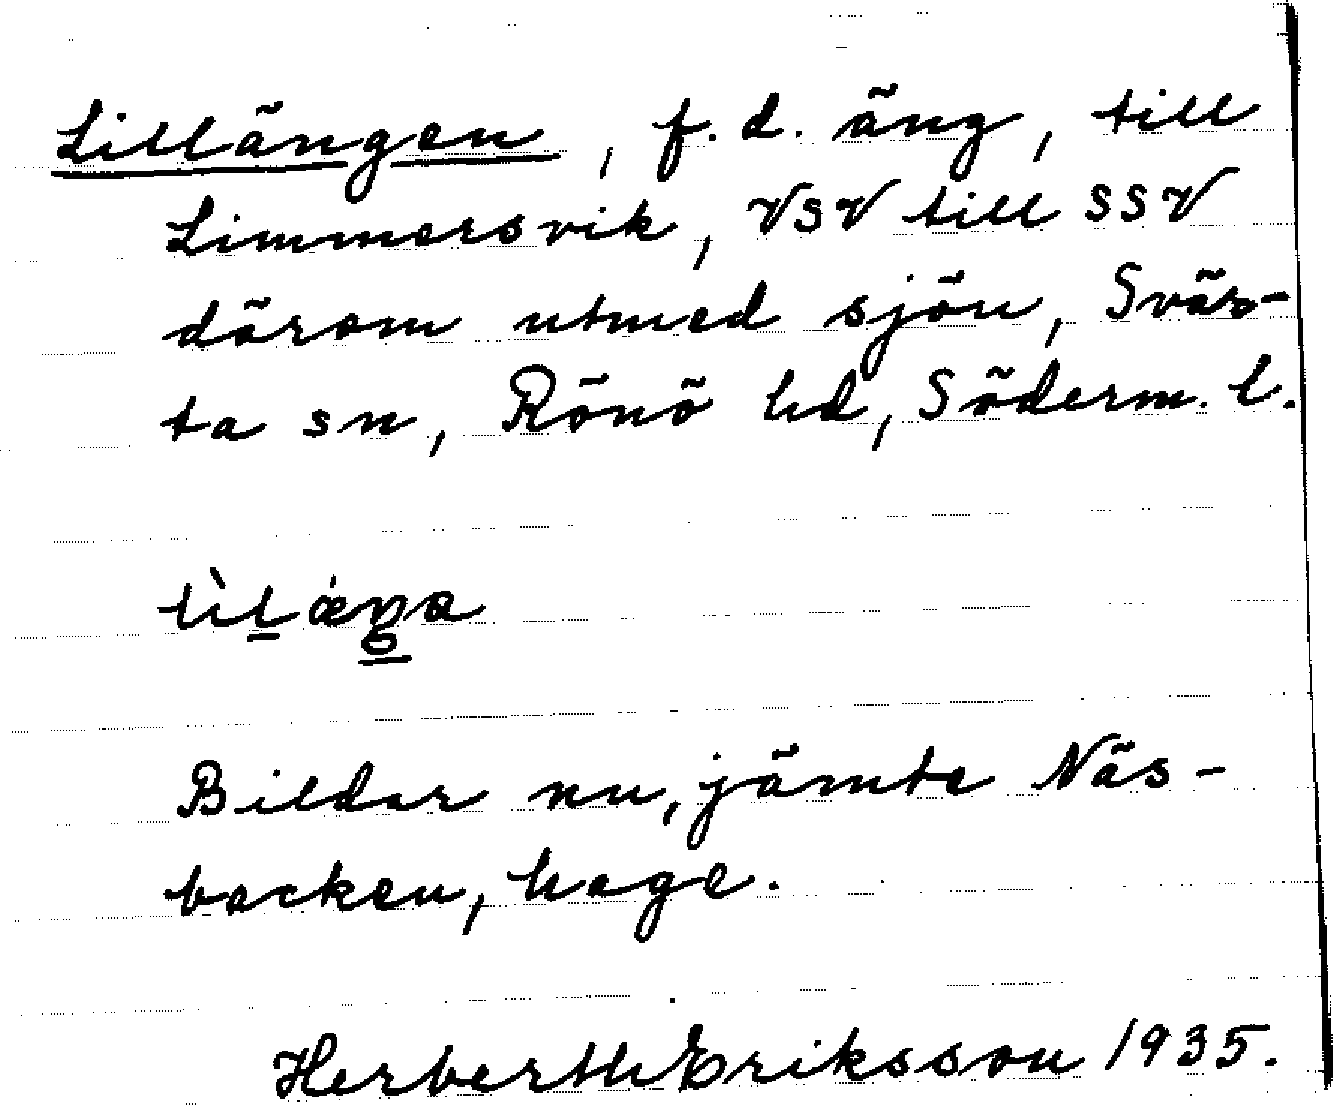 Lillängen, f.d. äng, till
Limmersvik, VSV till SSV
därom utmed sjön, Svär-
ta sn, Rönö hd, Söderm. l.
Bildar nu, jämte Näs-
backen, hage.
Herberth Eriksson 1935.